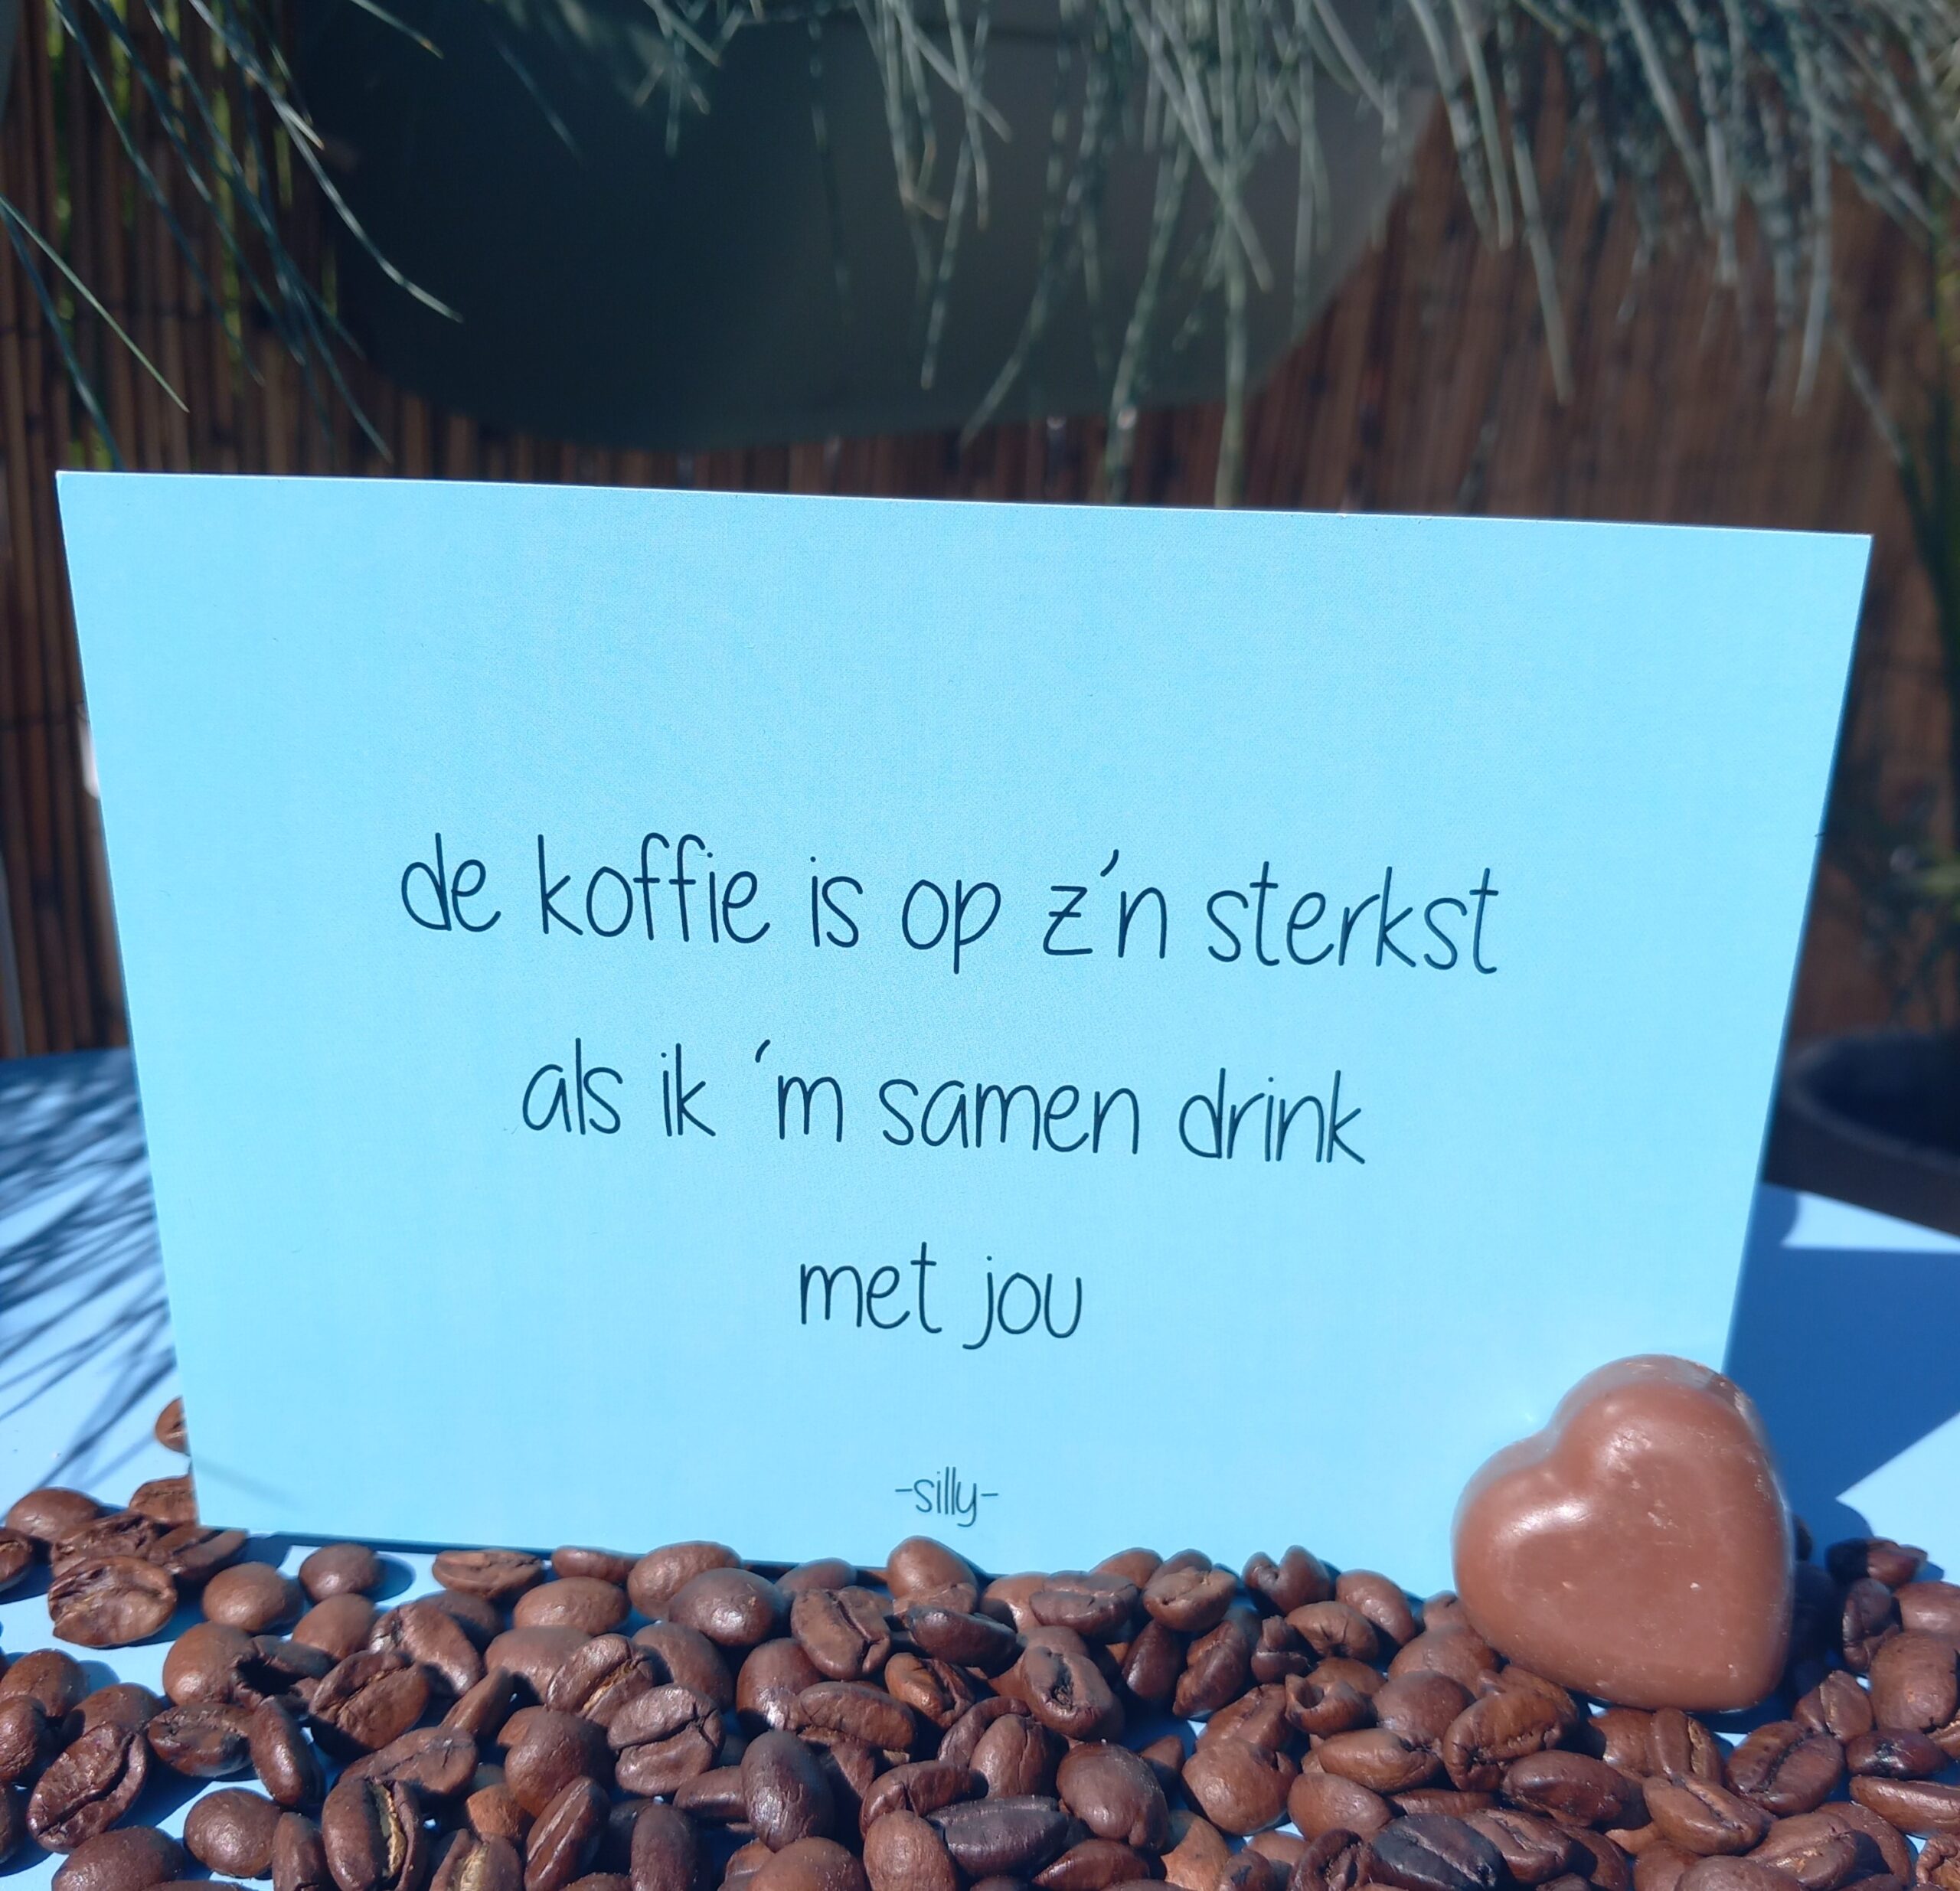 de koffie is op z'n sterkst
als ik 'm samen drink
met jou
-silly-